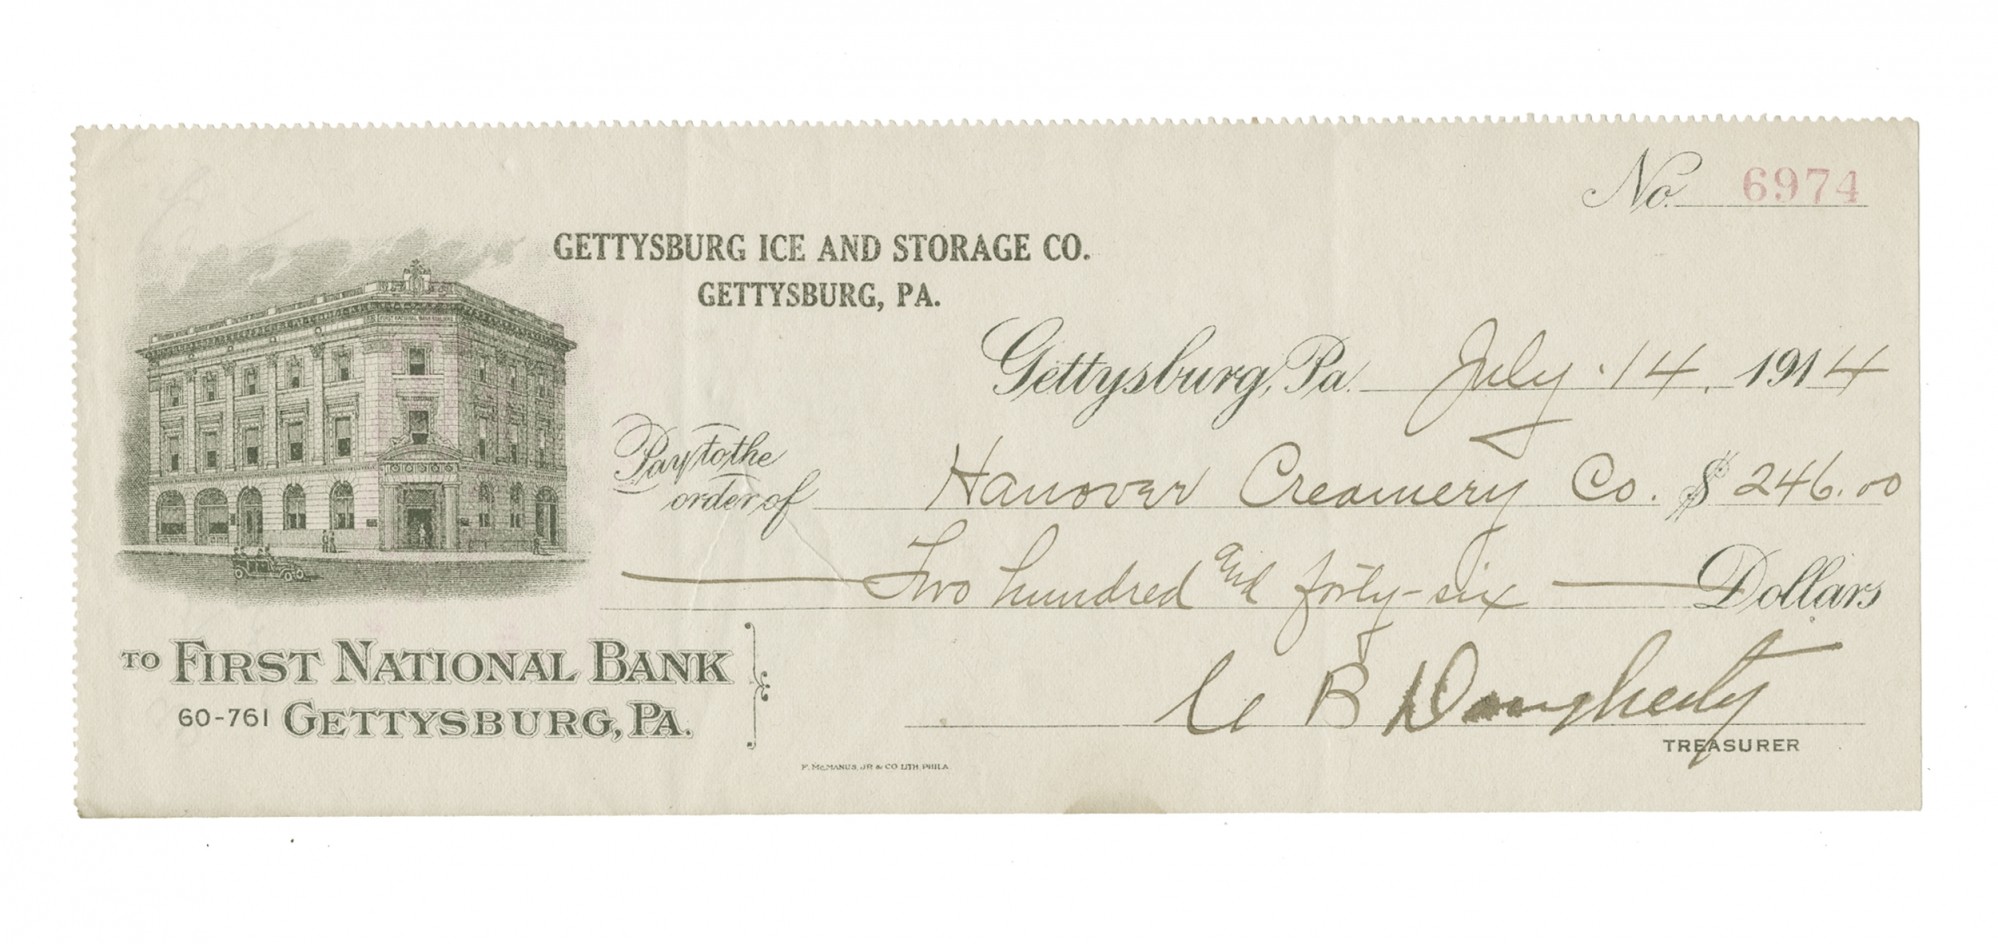 No. 6974
GETTYSBURG ICE AND STORAGE CO.
GETTYSBURG, PA.
Gettysburg, Pa. July 14, 1914
Pay to the
order of Hanover Creamery Co. $ 246.00
Two hundred and forty-six Dollars
TO FIRST NATIONAL BANK
60-761 GETTYSBURG, PA.
B Dougherty
TREASURER
F. McMANUS, JR & CO LITH. PHILA.